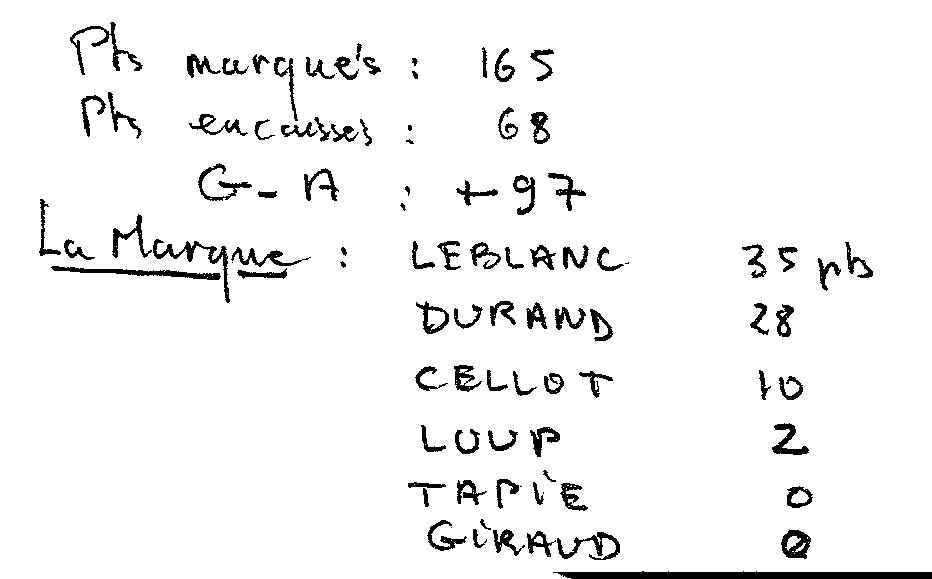 Pts marqués : 165
Pts encaissés : 68
G-A : +97
La Marque : LEBLANC 35 pts
DURAND 28
CELLOT 10
LOUP 2
TAPIE 0
GIRAUD 0